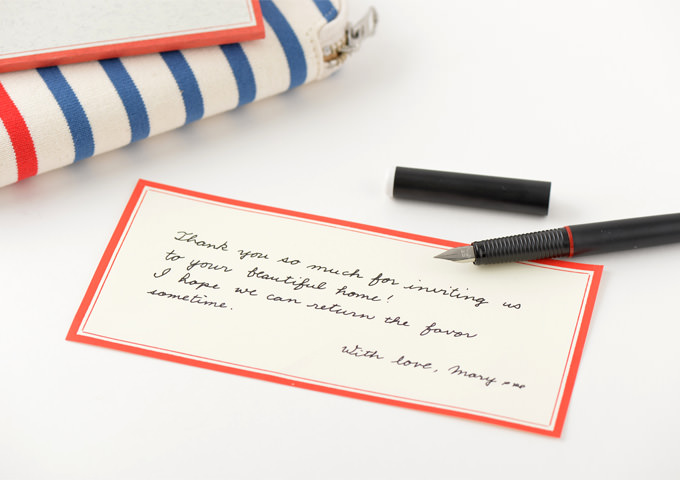 Thank you so much for inviting us
to your beautiful home!
I hope we can return the favor
sometime.
With love, Mary